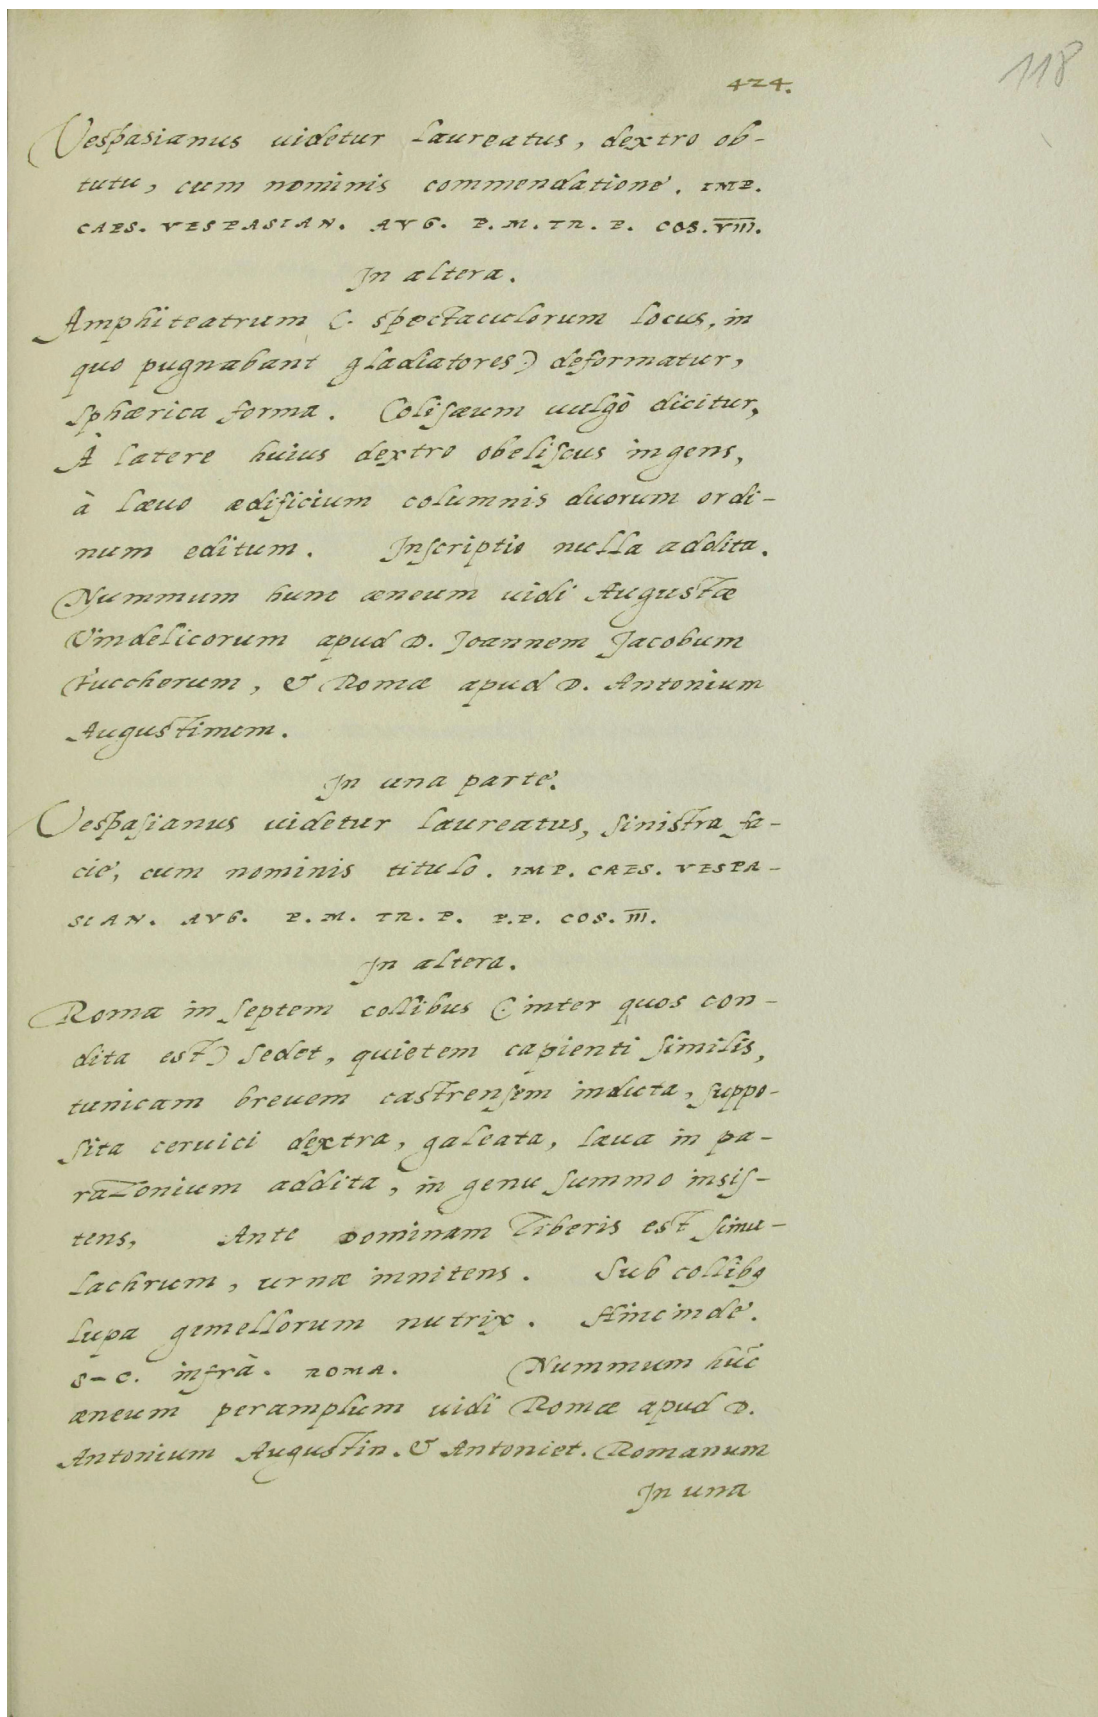 118
424.
Vespasianus uidetur laureatus, dextro ob-
tutu, cum nominis commendatione. IMP.
CAES. VESPASIAN. AVG. P. M. TR. P. COS. VIII.
In altera.
Amphiteatrum (: spectaculorum locus, in
quo pugnabant gladiatores:) deformatur,
sphærica forma. Colisæum uulgò dicitur,
À latere huius dextro obeliscus ingens,
à læuo ædificium columnis duorum ordi-
num editum. Inscriptio nulla addita.
Nummum hunc æneum uidi Augustæ
Vindelicorum apud D. Joannem Jacobum
Fuccherum, & Romæ apud D. Antonium
Augustinum.
In una parte.
Vespasianus uidetur laureatus, sinistra fa-
cie, cum nominis titulo. IMP. CAES. VESPA-
SIAN. AVG. P. M. TR. P. P. P. COS. III.
In altera.
Roma in septem collibus (: inter quos con-
dita est:) sedet, quietem capienti similis,
tunicam breuem castrensem induta, suppo-
sita ceruici dextra, galeata, læua in pa-
razonium addita, in genu summo insis-
tens, Ante Dominam Tiberis est simu-
lachrum, urnæ innitens. Sub collibꝰ
lupa gemellorum nutrix. Hincinde.
S-C. infrà. ROMA. Nummum hūc
æneum peramplum uidi Romæ apud D.
Antonium Augustin. & Antoniet. Romanum
In una